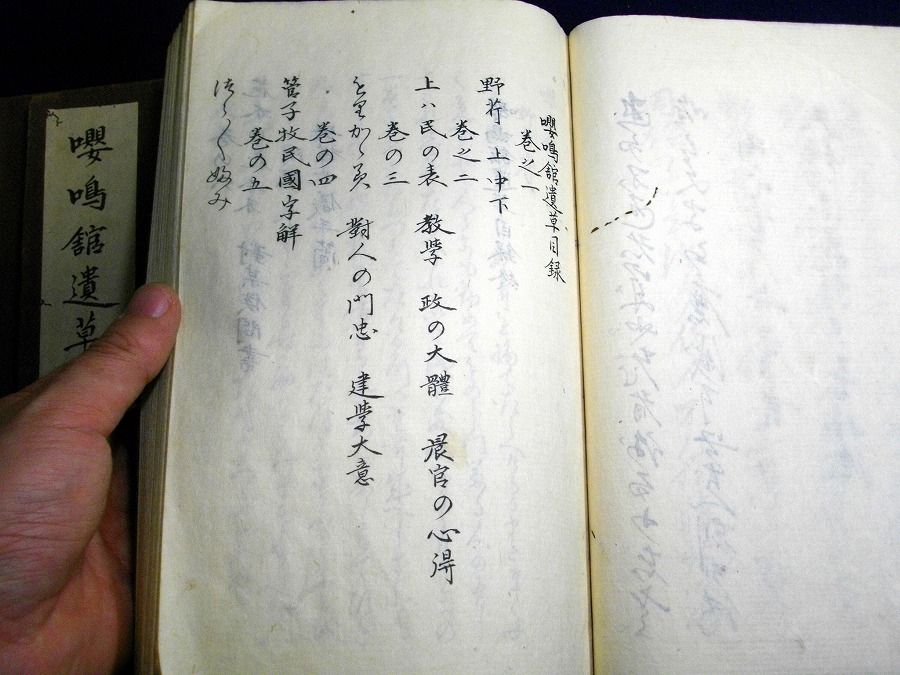 嚶鳴舘遺草目録
巻之一
野芹 上中下
巻之二
上ハ民の表 教學 政の大體 農官の心得
巻の三
もりかゝ美 對人の問忠 建學大意
巻の四
管子牧民國字解
巻の五
つら〱婦み
嚶鳴舘遺草